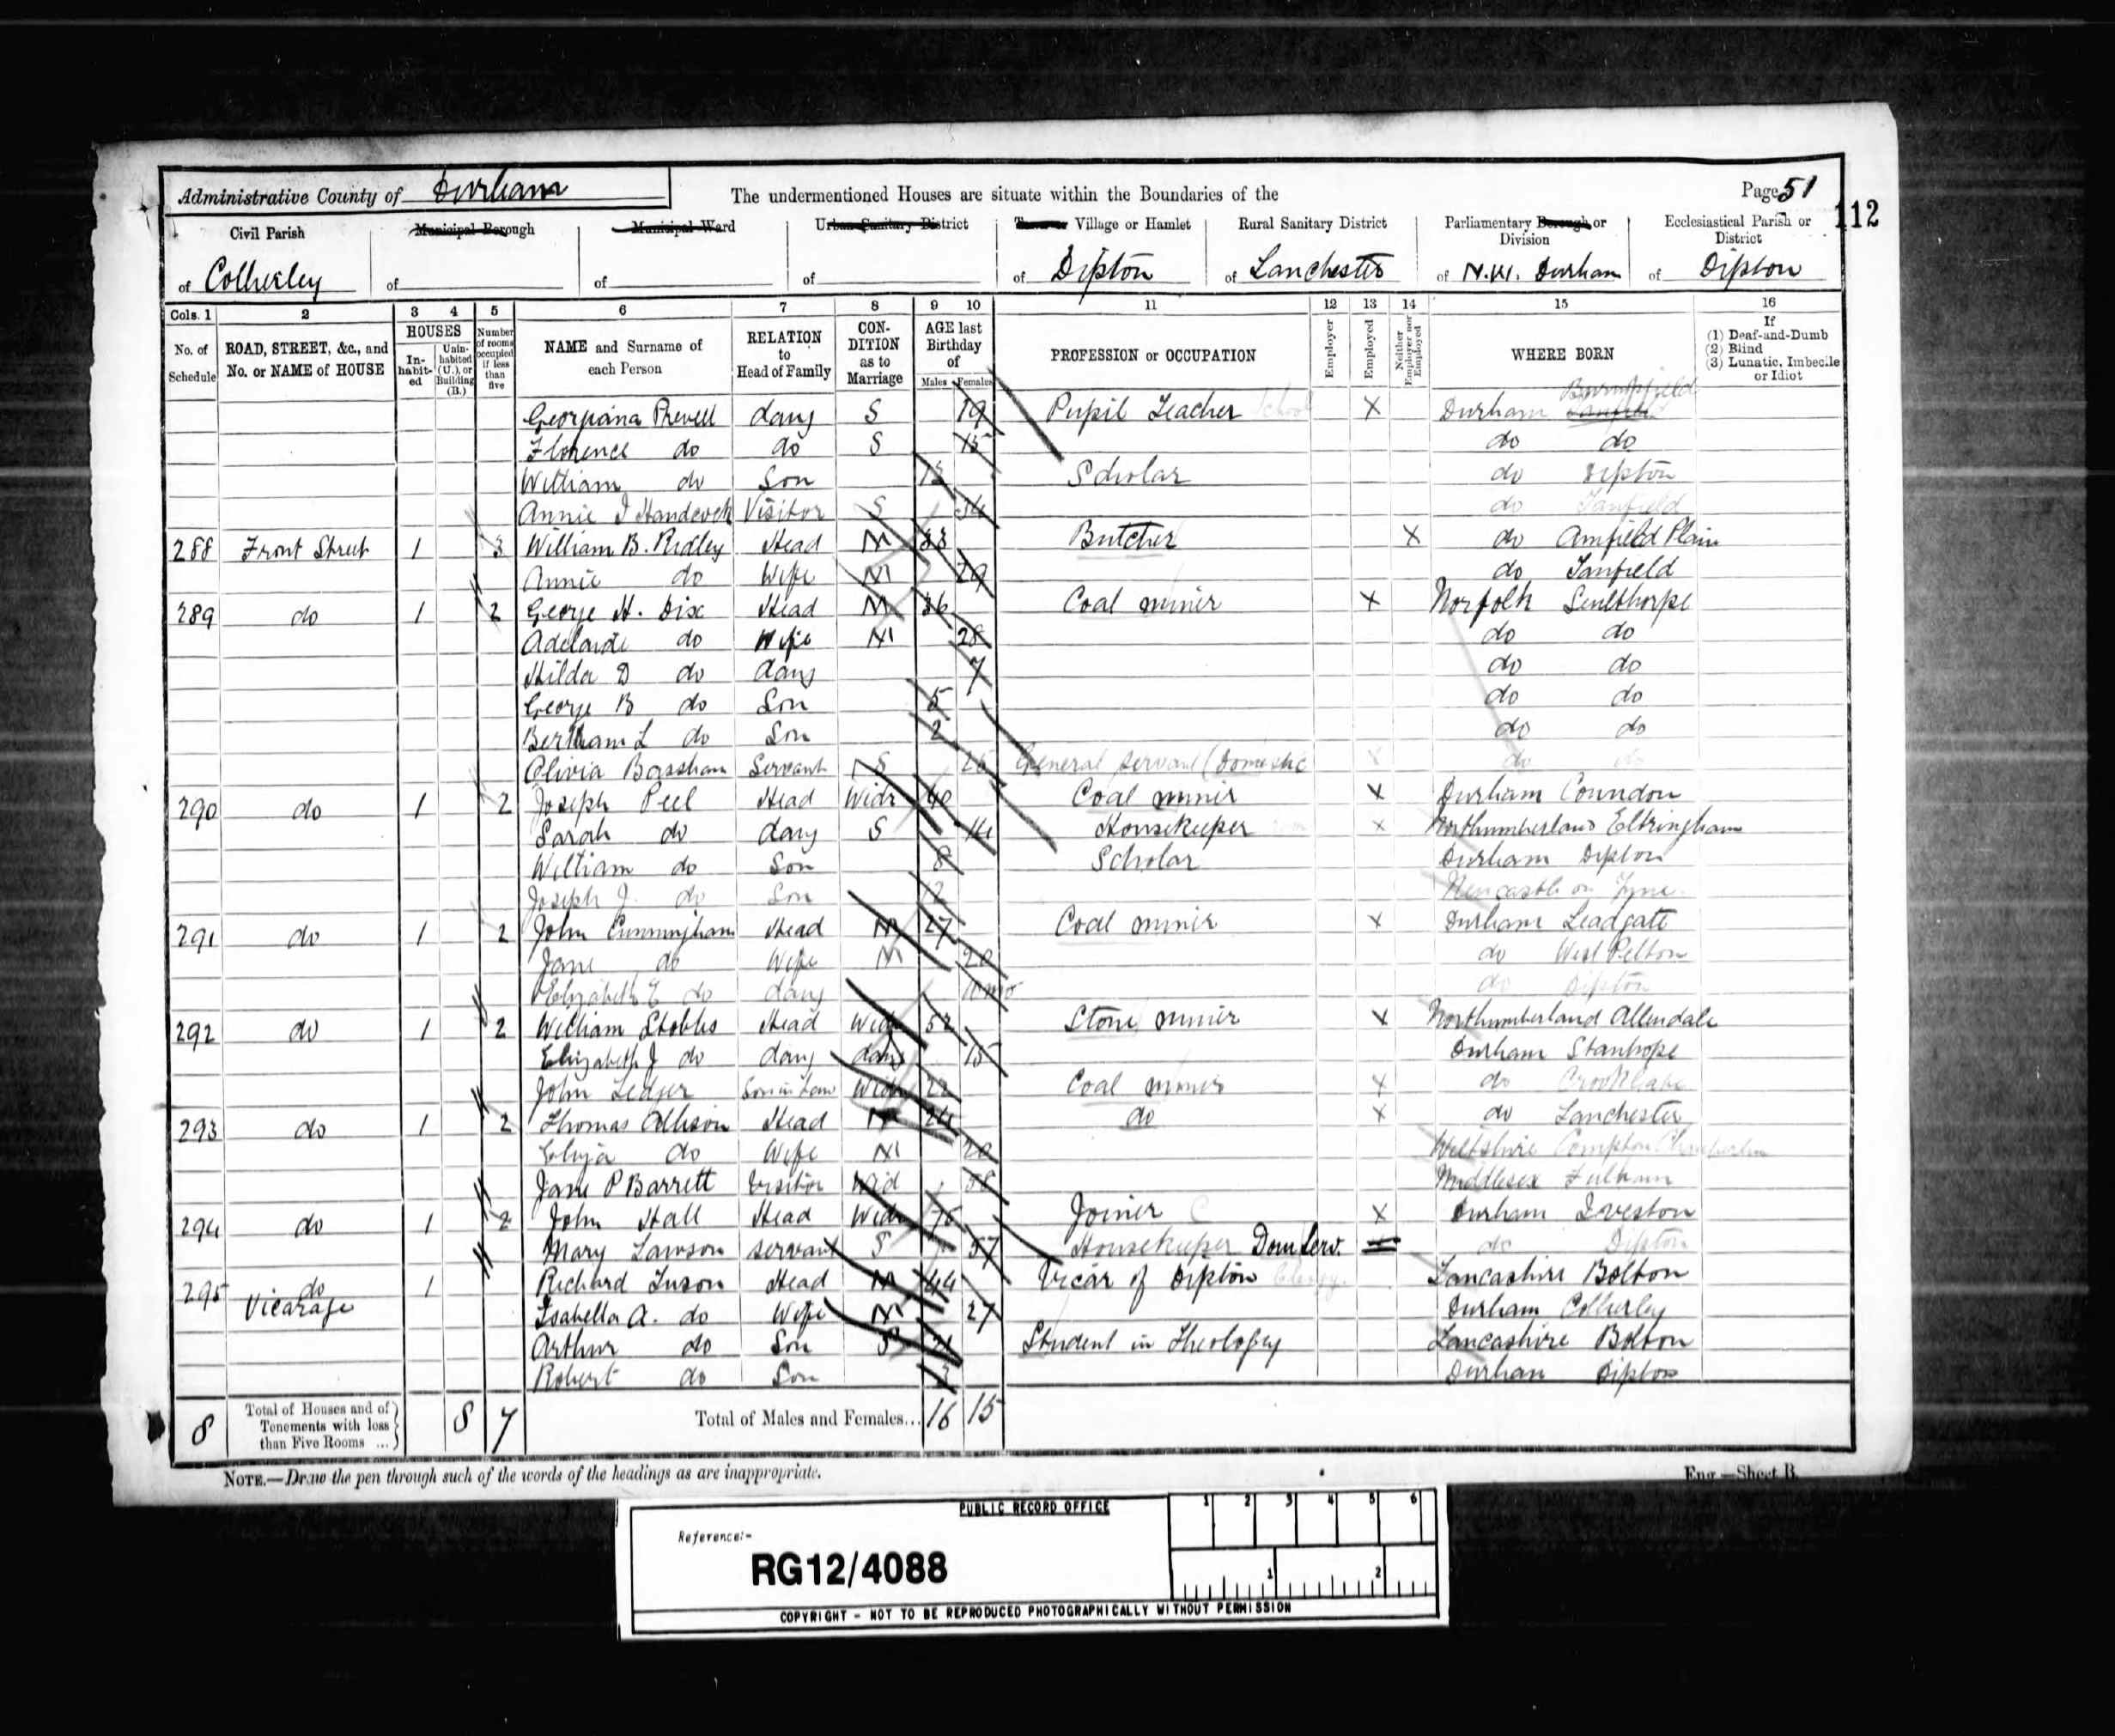 Administrative County of Durham
The undermentioned Houses are situate within the Boundaries of the
Page 51
112
Civil Parish of Collierley
Municipal Borough of
Municipal Ward of
Urban Sanitary District of
Town or Village or Hamlet of Dipton
Rural Sanitary District of Lanchester
Parliamentary Borough or Division of N.W. Durham
Ecclesiastical Parish or District of Dipton
Cols. 1 2 3 4 5 6 7 8 9 10 11 12 13 14 15 16
No. of Schedule
ROAD, STREET, &c., and No. or NAME of HOUSE
HOUSES
In-habit-ed
Unin-habited (U.), or Building (B.)
Number of rooms occupied if less than five
NAME and Surname of each Person
RELATION to Head of Family
CON-DITION as to Marriage
AGE last Birthday of
Males Females
PROFESSION or OCCUPATION
Employer
Employed
Neither Employer nor Employed
WHERE BORN
If (1) Deaf-and-Dumb (2) Blind (3) Lunatic, Imbecile or Idiot
Georgiana Prevell daug S 19 Pupil Teacher School X Durham Burnopfield
Florence do do S 15 do do
William do Son 13 Scholar do Dipton
Annie J Visitor S 34 do Tanfield
288 Front Street 1 3 William B. Ridley Head M 33 Butcher X do Annfield Plain
Annie do Wife M 29 do Tanfield
289 do 1 2 George H. Dix Head M 36 Coal miner X Norfolk Sculthorpe
Adelaide do Wife M 28 do do
Hilda D do daug 7 do do
George B do Son 5 do do
Bertram L do Son 2 do do
Olivia Bassham Servant S 26 General Servant (Domestic X do do
290 do 1 2 Joseph Peel Head Widr 40 Coal miner X Durham Coundon
Sarah do daug S 14 Housekeeper X Northumberland Eltringham
William do Son 8 Scholar Durham Dipton
Joseph J. do Son 2 Newcastle on Tyne
291 do 1 2 John Cunningham Head M 27 Coal miner X Durham Leadgate
Jane do Wife M 20 do West Pelton
Elizabeth E do daug 10 mo do Dipton
292 do 1 2 William Stobbs Head Widr 52 Stone miner X Northumberland Allendale
Elizabeth J do daug daug 15 Durham Stanhope
John Ledger Son in law Widr 22 Coal miner X do
293 do 1 2 Thomas Allison Head M 24 do X do Lanchester
Eliza do Wife M 20 Wiltshire Compton
Jane P Barrett Visitor Wid 58 Middlesex Fulham
294 do 1 2 John Hall Head Widr 76 Joiner C X Durham Iveston
Mary Lawson servant S 57 Housekeeper Dom Serv. do Dipton
295 do 1 Richard Tuson Head M 44 Vicar of Dipton Clergy. Lancashire Bolton
Vicarage Isabella A. do Wife M 27 Durham Collierley
Arthur do Son S 21 Student in Theology Lancashire Bolton
Robert do Son 3 Durham Dipton
8 Total of Houses and of Tenements with less than Five Rooms ... 8 7 Total of Males and Females... 16 15
NOTE.—Draw the pen through such of the words of the headings as are inappropriate.
Eng.—Sheet B.
PUBLIC RECORD OFFICE
1 2 3 4 5 6
Reference:-
RG12/4088
1 2
COPYRIGHT - NOT TO BE REPRODUCED PHOTOGRAPHICALLY WITHOUT PERMISSION